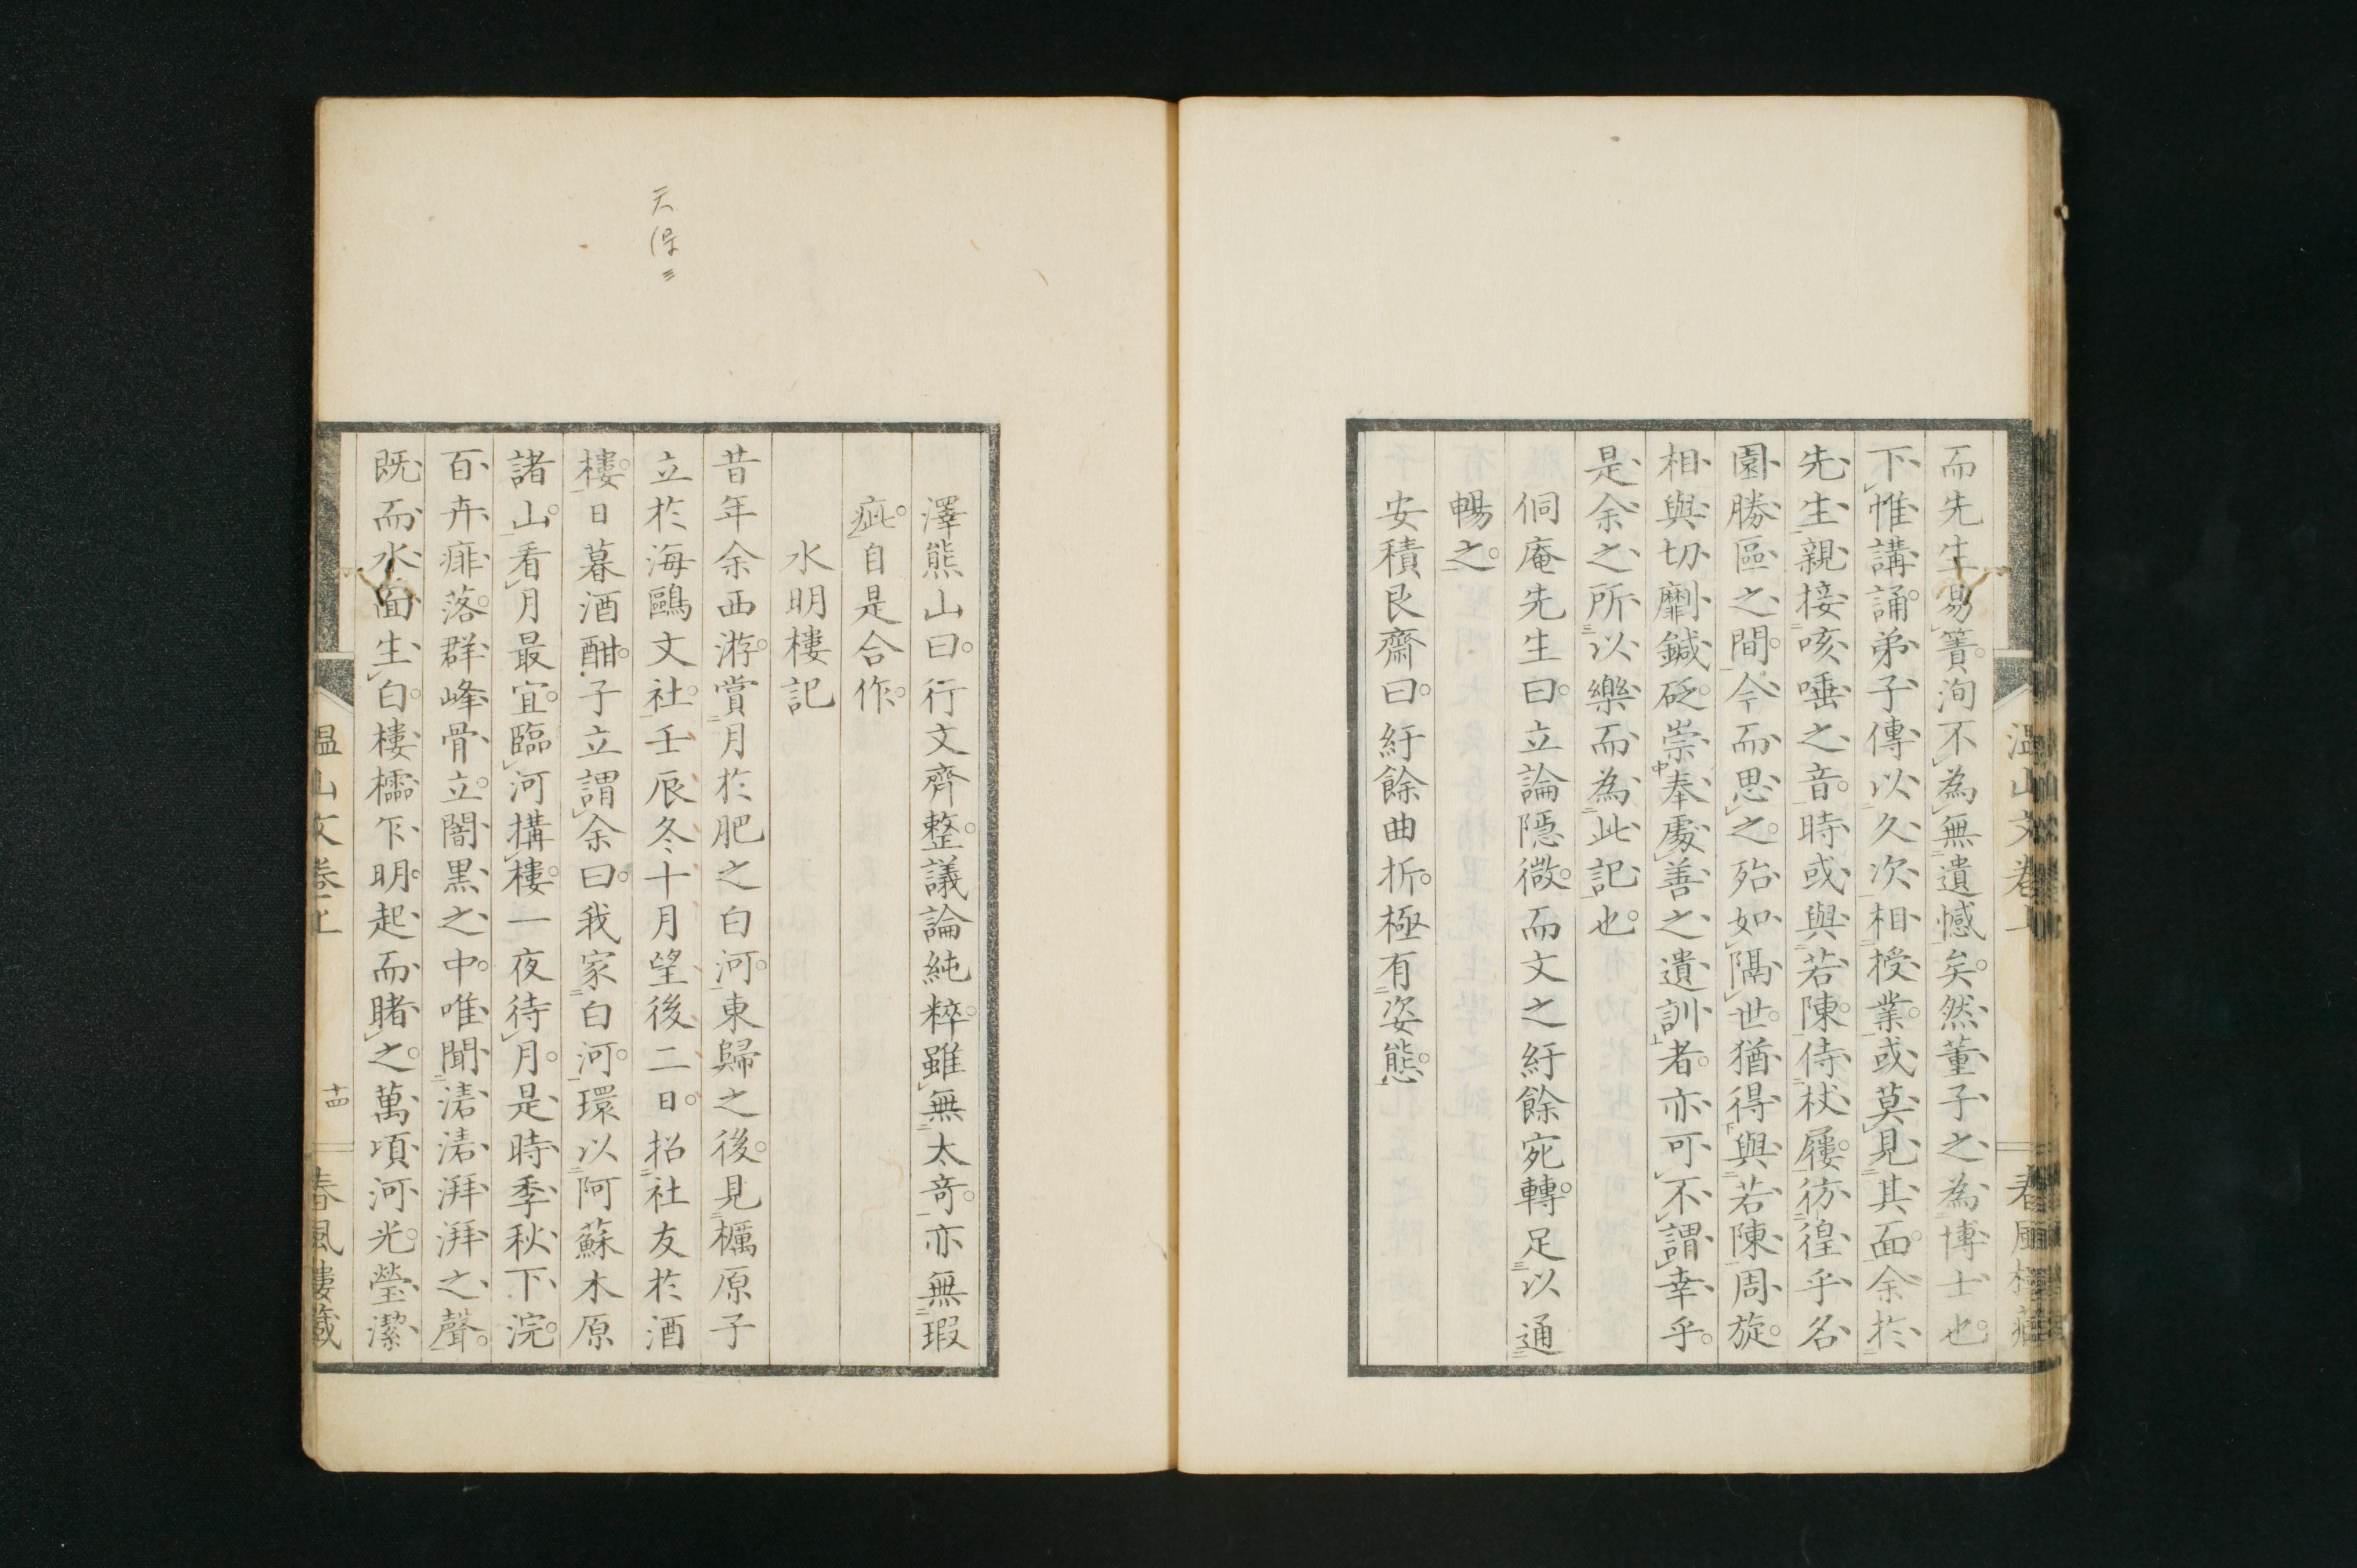 而先生易簀洵不為無遺憾矣然董子之為博士也
下帷講誦弟子傳以久次相授業或莫見其面余於
先生親接咳唾之音時或與若陳侍杖屨彷徨乎名
園勝區之間今而思之殆如隔世猶得與若陳周旋
相與切劘鍼砭崇奉處善之遺訓者亦可不謂幸乎
是余之所以樂而為此記也
侗庵先生曰立論隱微而文之紆餘宛轉足以通
暢之
安積艮齋曰紆餘曲折極有姿態
澤熊山曰行文齊整議論純粹雖無太奇亦無瑕
疵自是合作
水明樓記
昔年余西游賞月於肥之白河東歸之後見櫔原子
立於海鷗文社壬辰冬十月望後二日招社友於酒
樓日暮酒酣子立謂余曰我家白河環以阿蘇木原
諸山看月最宜臨河搆樓一夜待月是時季秋下浣
百卉痱落群峰骨立闇黑之中唯聞湱湱湃湃之聲
既而水面生白樓櫺乍明起而睹之萬頃河光瑩潔
温山文卷上
十四
春風樓藏
天保三